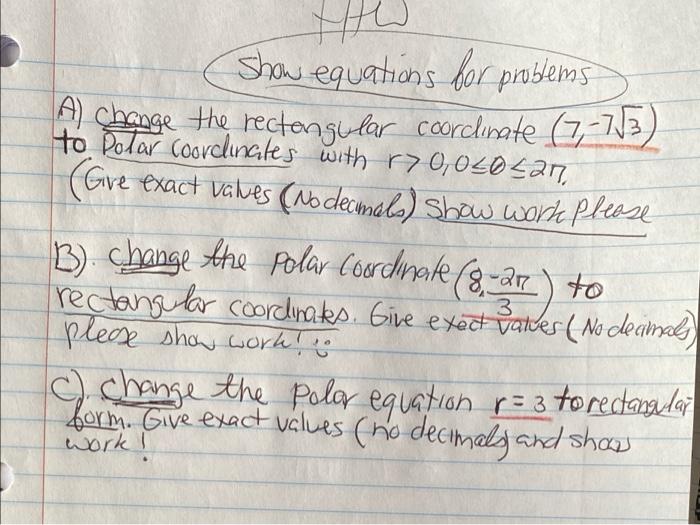 HW
Show equations for problems
A) change the rectangular coordinate (7,-7√3)
to Polar coordinates with r>0, 0≤θ≤2π.
(Give exact values (No decimals) Show work please
B). change the Polar Coordinate (8, -2π/3) to
rectangular coordinates. Give exact values (No decimals)
please show work!
C). change the Polar equation r=3 to rectangular
form. Give exact values (no decimals) and show
work!